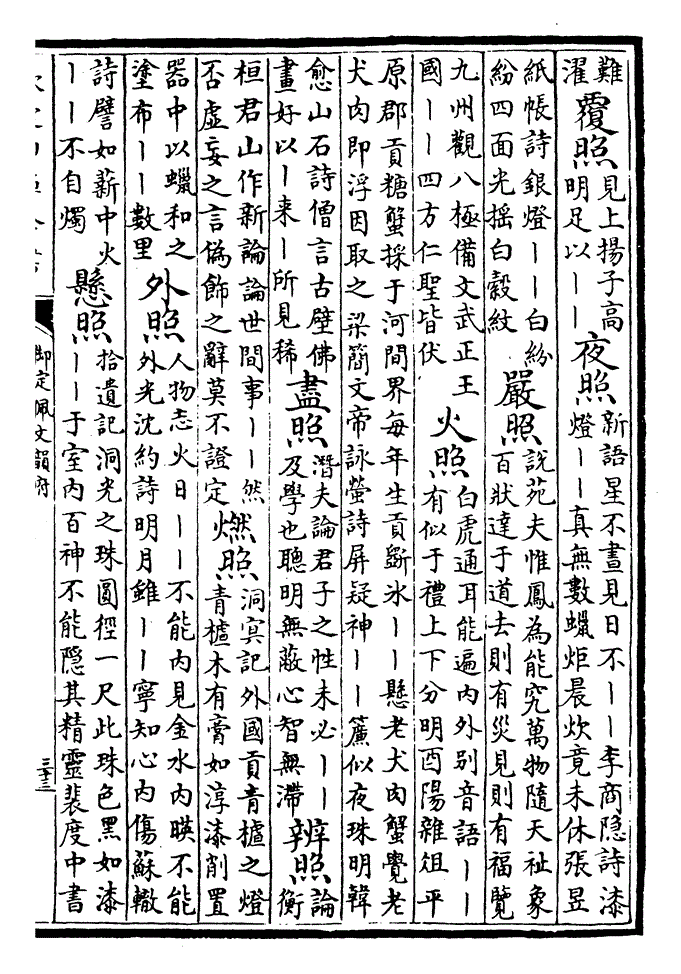 難
濯
覆照
見上揚子高
明足以丨丨
夜照
新語星不晝見日不丨丨李商隠詩漆
燈丨丨真無數蠟炬晨炊竟未休張昱
紙帳詩銀燈丨丨白紛
紛四面光揺白縠紋
嚴照
説苑夫惟鳳為能究萬物隨天祉象
百狀達于道去則有災見則有福覽
九州觀八極備文武正王
國丨丨四方仁聖皆伏
火照
白虎通耳能遍内外别音語丨丨
有似于禮上下分明酉陽雜俎平
原郡貢糖蟹採于河間界每年生貢斷冰丨丨懸老犬肉蟹覺老
犬肉即浮因取之梁簡文帝詠螢詩屏疑神丨丨簾似夜珠明韓
愈山石詩僧言古壁佛
畫好以丨来丨所見稀
盡照
潛夫論君子之性未必丨丨
及學也聰明無蔽心智無滯
辨照
論
衡
桓君山作新論論世間事丨丨然
否虚妄之言偽飾之辭莫不證定
燃照
洞冥記外國貢青櫨之燈
青櫨木有膏如淳漆削置
器中以蠟和之
塗布丨丨數里
外照
人物志火日丨丨不能内見金水内暎不能
外光沈約詩明月雖丨丨寧知心内傷蘇轍
詩譬如薪中火
丨丨不自燭
懸照
拾遺記洞光之珠圓徑一尺此珠色黑如漆
丨丨于室内百神不能隠其精靈裴度中書
御定佩文韻府
三十三